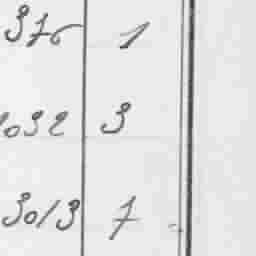 376 1
1032 3
3013 7